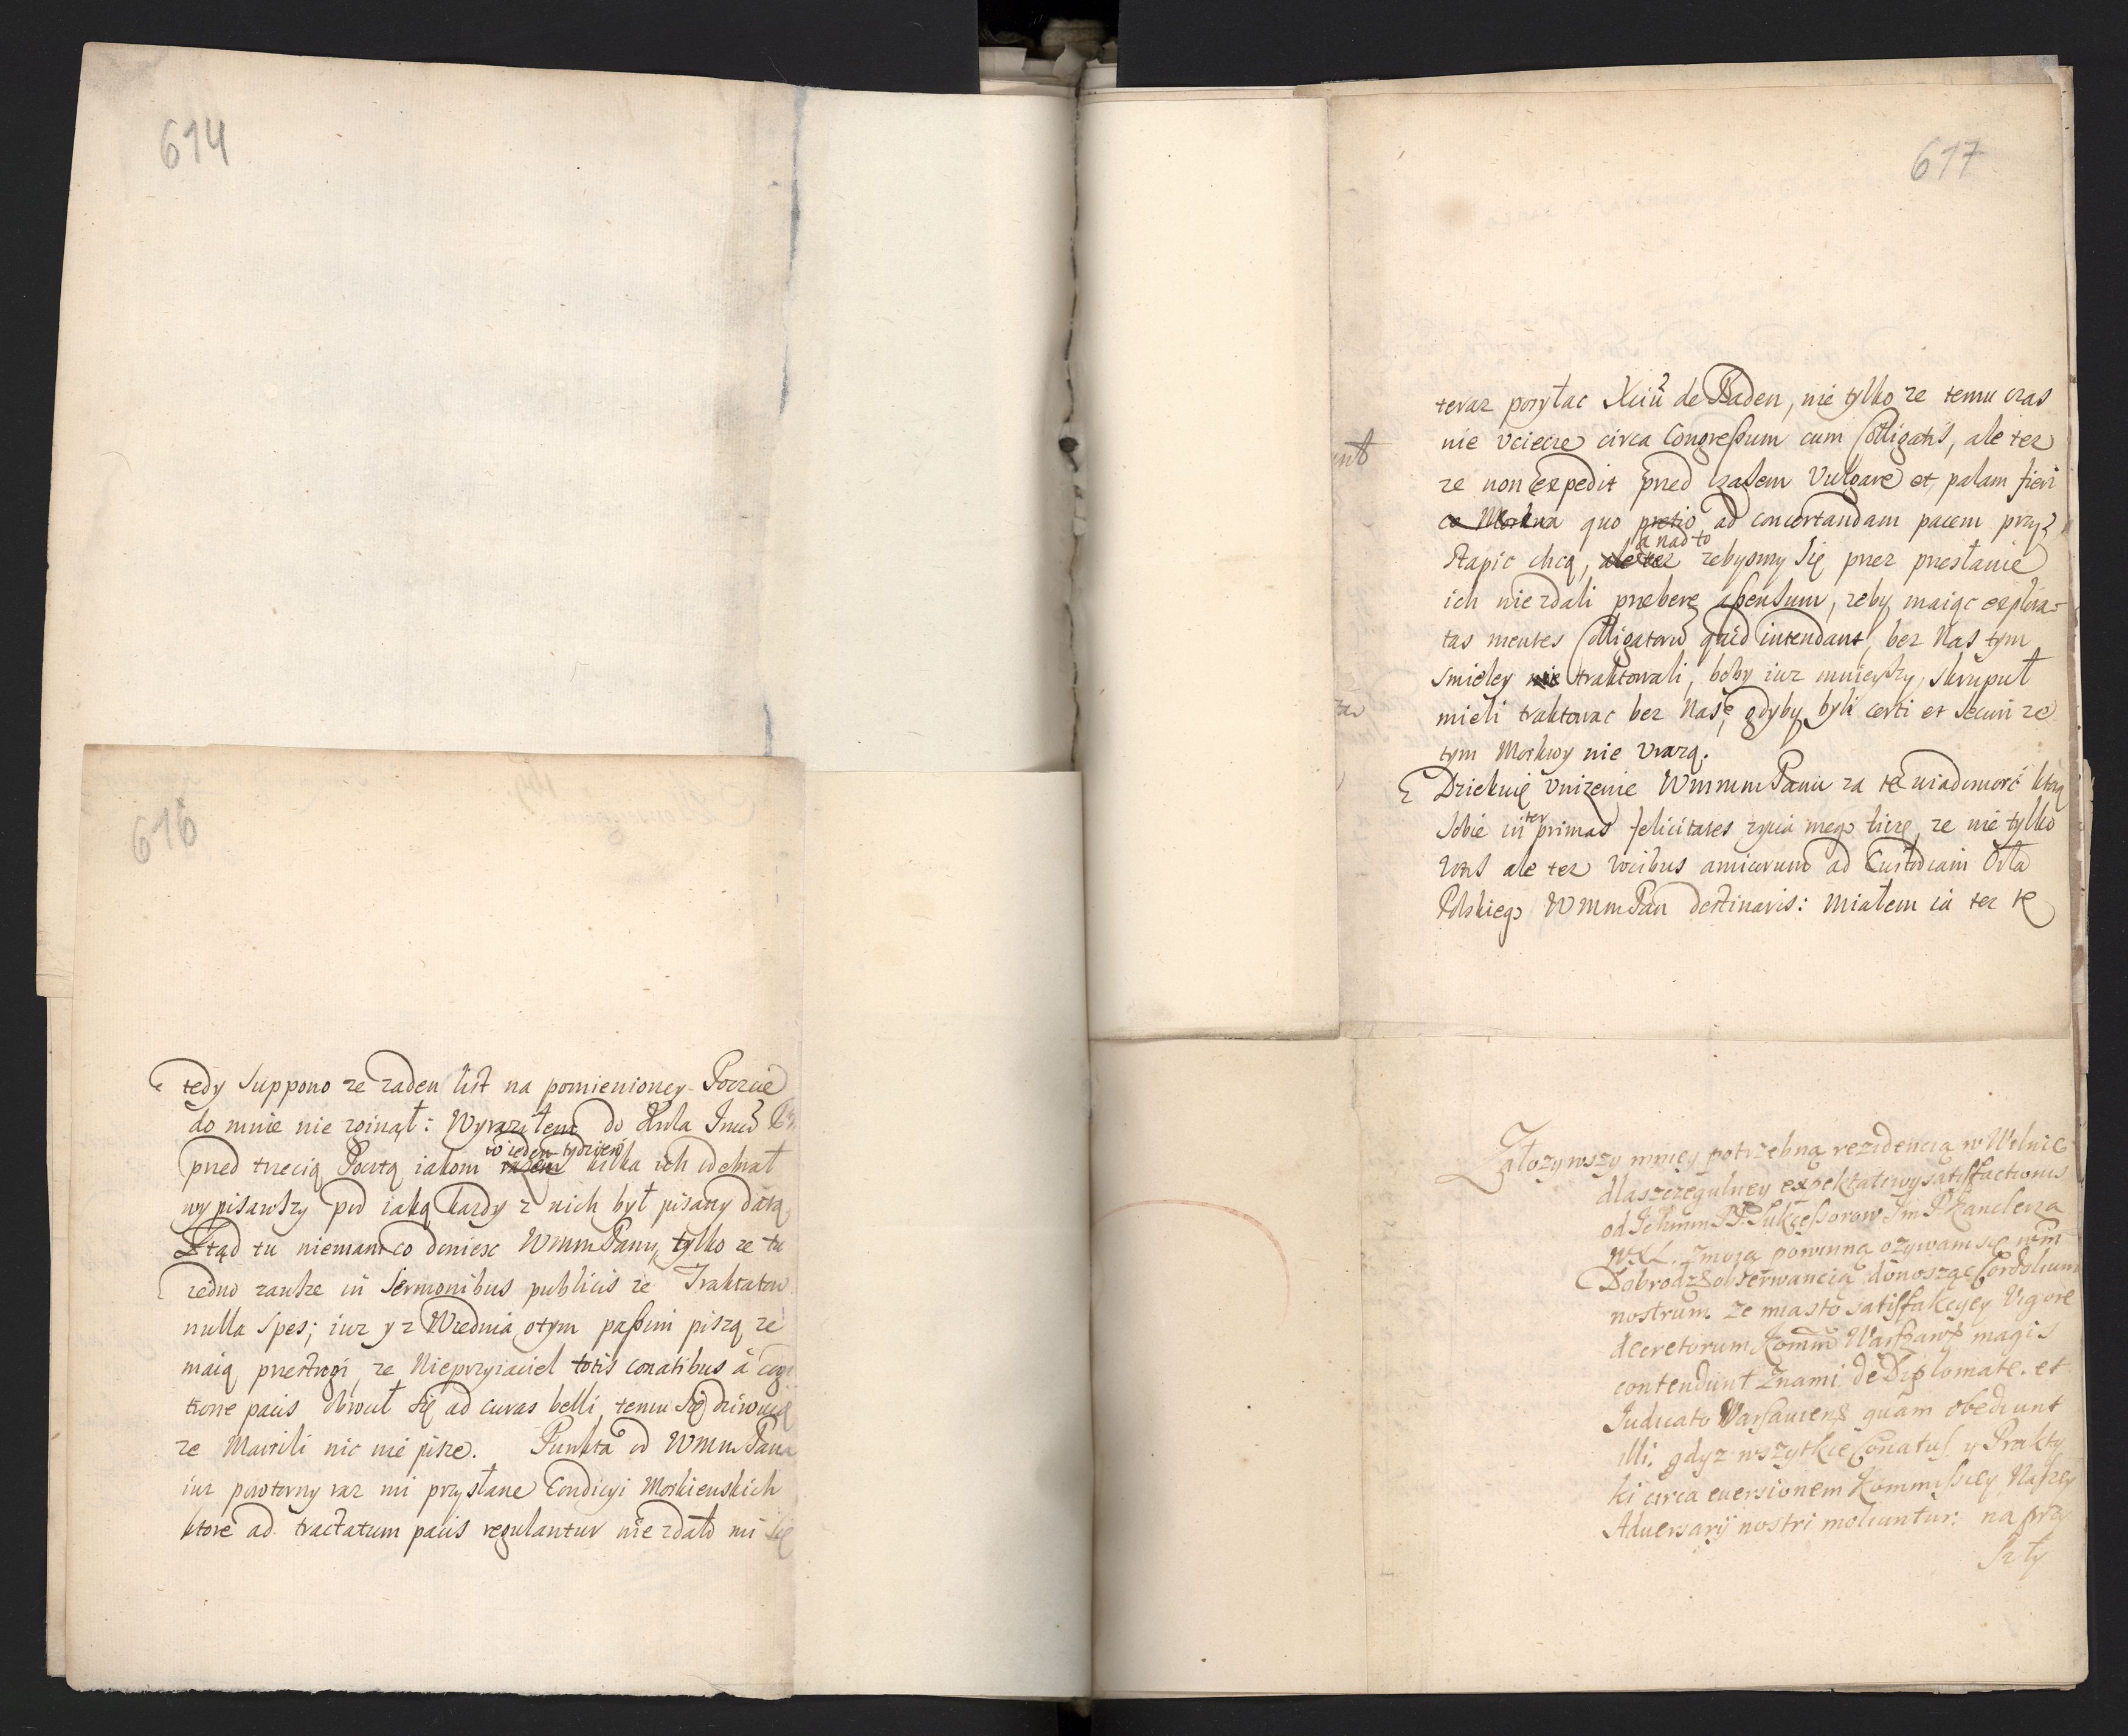 614
616
tedy Suppono ze zaden list na pomienioney Poczcie
do mnie nie zginął: Wyraziłem do Krola Jmci
przed trzecią Pocztą iakom razem w ieden tydzien kilka ich odebrał
wypisawszy pod iaką kazdy z nich był pisany datą,
Ztąd tu niemam co doniesc WmmPanu, tylko ze tu
iedno zawsze in Sermonibus publicis ze Traktatow
nulla Spes; iuz y z Wiednia otym passim piszą, ze
maią przestrogi, ze Nieprzyiaciel totis conatibus à cogi
tione pacis obrocił się ad curas belli, temu się dziwuię
ze Mavrili nic nie pisze. Punkta od WmmPana
iuz powtorny raz mi przysłane Condicyi Moskiewskich
ktore ad tractatum pacis regulantur nie zdało mi się
617
teraz posyłac Xciu de Baden, nie tylko ze temu czas
nie uciecze circa Congressum cum Colligatis, ale tez
ze non expedit przed czasem Vulgare et palam fieri
co Moskwa quo pretio ad concertandam pacem przy
stąpic chcą, ale tez a nad to zebysmy się przez przesłanie
ich nie zdali praebere assensum, zeby maiąc explora-
tas mentes Colligatorum quid intendant, bez Nas tym
smieley nie traktowali, boby iuz mnieyszy skrupuł
mieli traktowac bez Nas, gdyby byli certi et securi ze
tym Moskwy nie Urazą.
Dziekuię Unizenie WmmmPanu za tę wiadomość ktorą
sobie inter primas felicitates zycia mego liczę, ze nie tylko
votis ale tez vocibus amicorum ad Custodiam Orła
Polskiego WmmPan destinaris: Miałem ia tez tę
Załozywszy mniey potrzebną rezidencią w Wilnie
dla szczegulney expektatiwy satisfactionis
od Ichmm PP. Sukcessorow Jm P Kanclerza
W.X.L. zmoią powinną ozywam się wm
Dobrodz obserwancią donosząc Cordolium
nostrum ze miasto satisfakcyey Vigore
decretorum Komm Warszaws magis
contendunt znami de Diplomate. et
Iudicato Varsauiens quam obediunt
illi. gdyz wszytkie Conatus y Prakty
ki circa euersionem Kommissiey Naszey
Aduersarij nostri moliuntur: na prze
szły